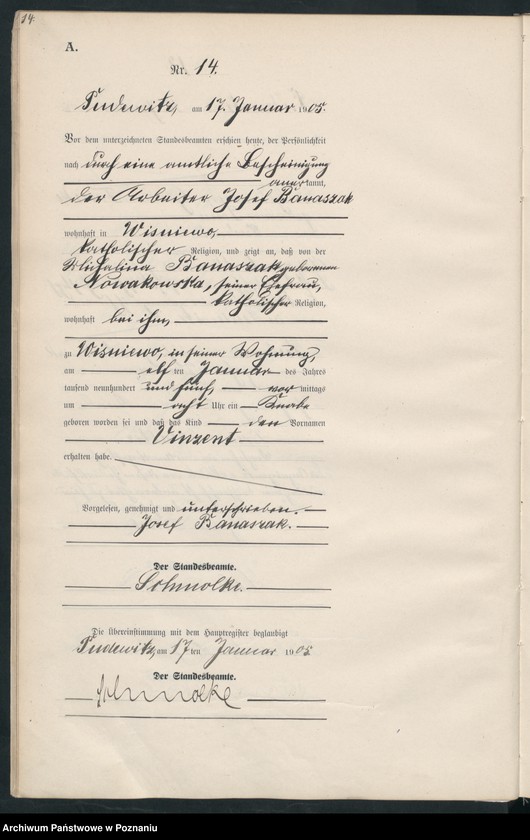 14.
A.
Nr. 14.
Pudewitz, am 17. Januar 1905.
Vor dem unterzeichneten Standesbeamten erschien heute, der Persönlichkeit
nach durch eine amtliche Bescheinigung
anerkannt,
der Arbeiter Josef Banaszak
wohnhaft in Wisniewo,
katholischer Religion, und zeigt an, daß von der
Michalina Banaszak geborenen
Nowakowska, seiner Ehefrau,
katholischer Religion,
wohnhaft bei ihm,
zu Wisniewo, in seiner Wohnung,
am elf ten Januar des Jahres
tausend neunhundert und fünf, vor mittags
um acht Uhr ein Knabe
geboren worden sei und daß das Kind den Vornamen
Vinzent
erhalten habe.
Vorgelesen, genehmigt und unterschrieben.
Josef Banaszak.
Der Standesbeamte.
Schmolke.
Die Übereinstimmung mit dem Hauptregister beglaubigt
Pudewitz, am 17 ten Januar 1905
Der Standesbeamte.
Schmolke
Archiwum Państwowe w Poznaniu